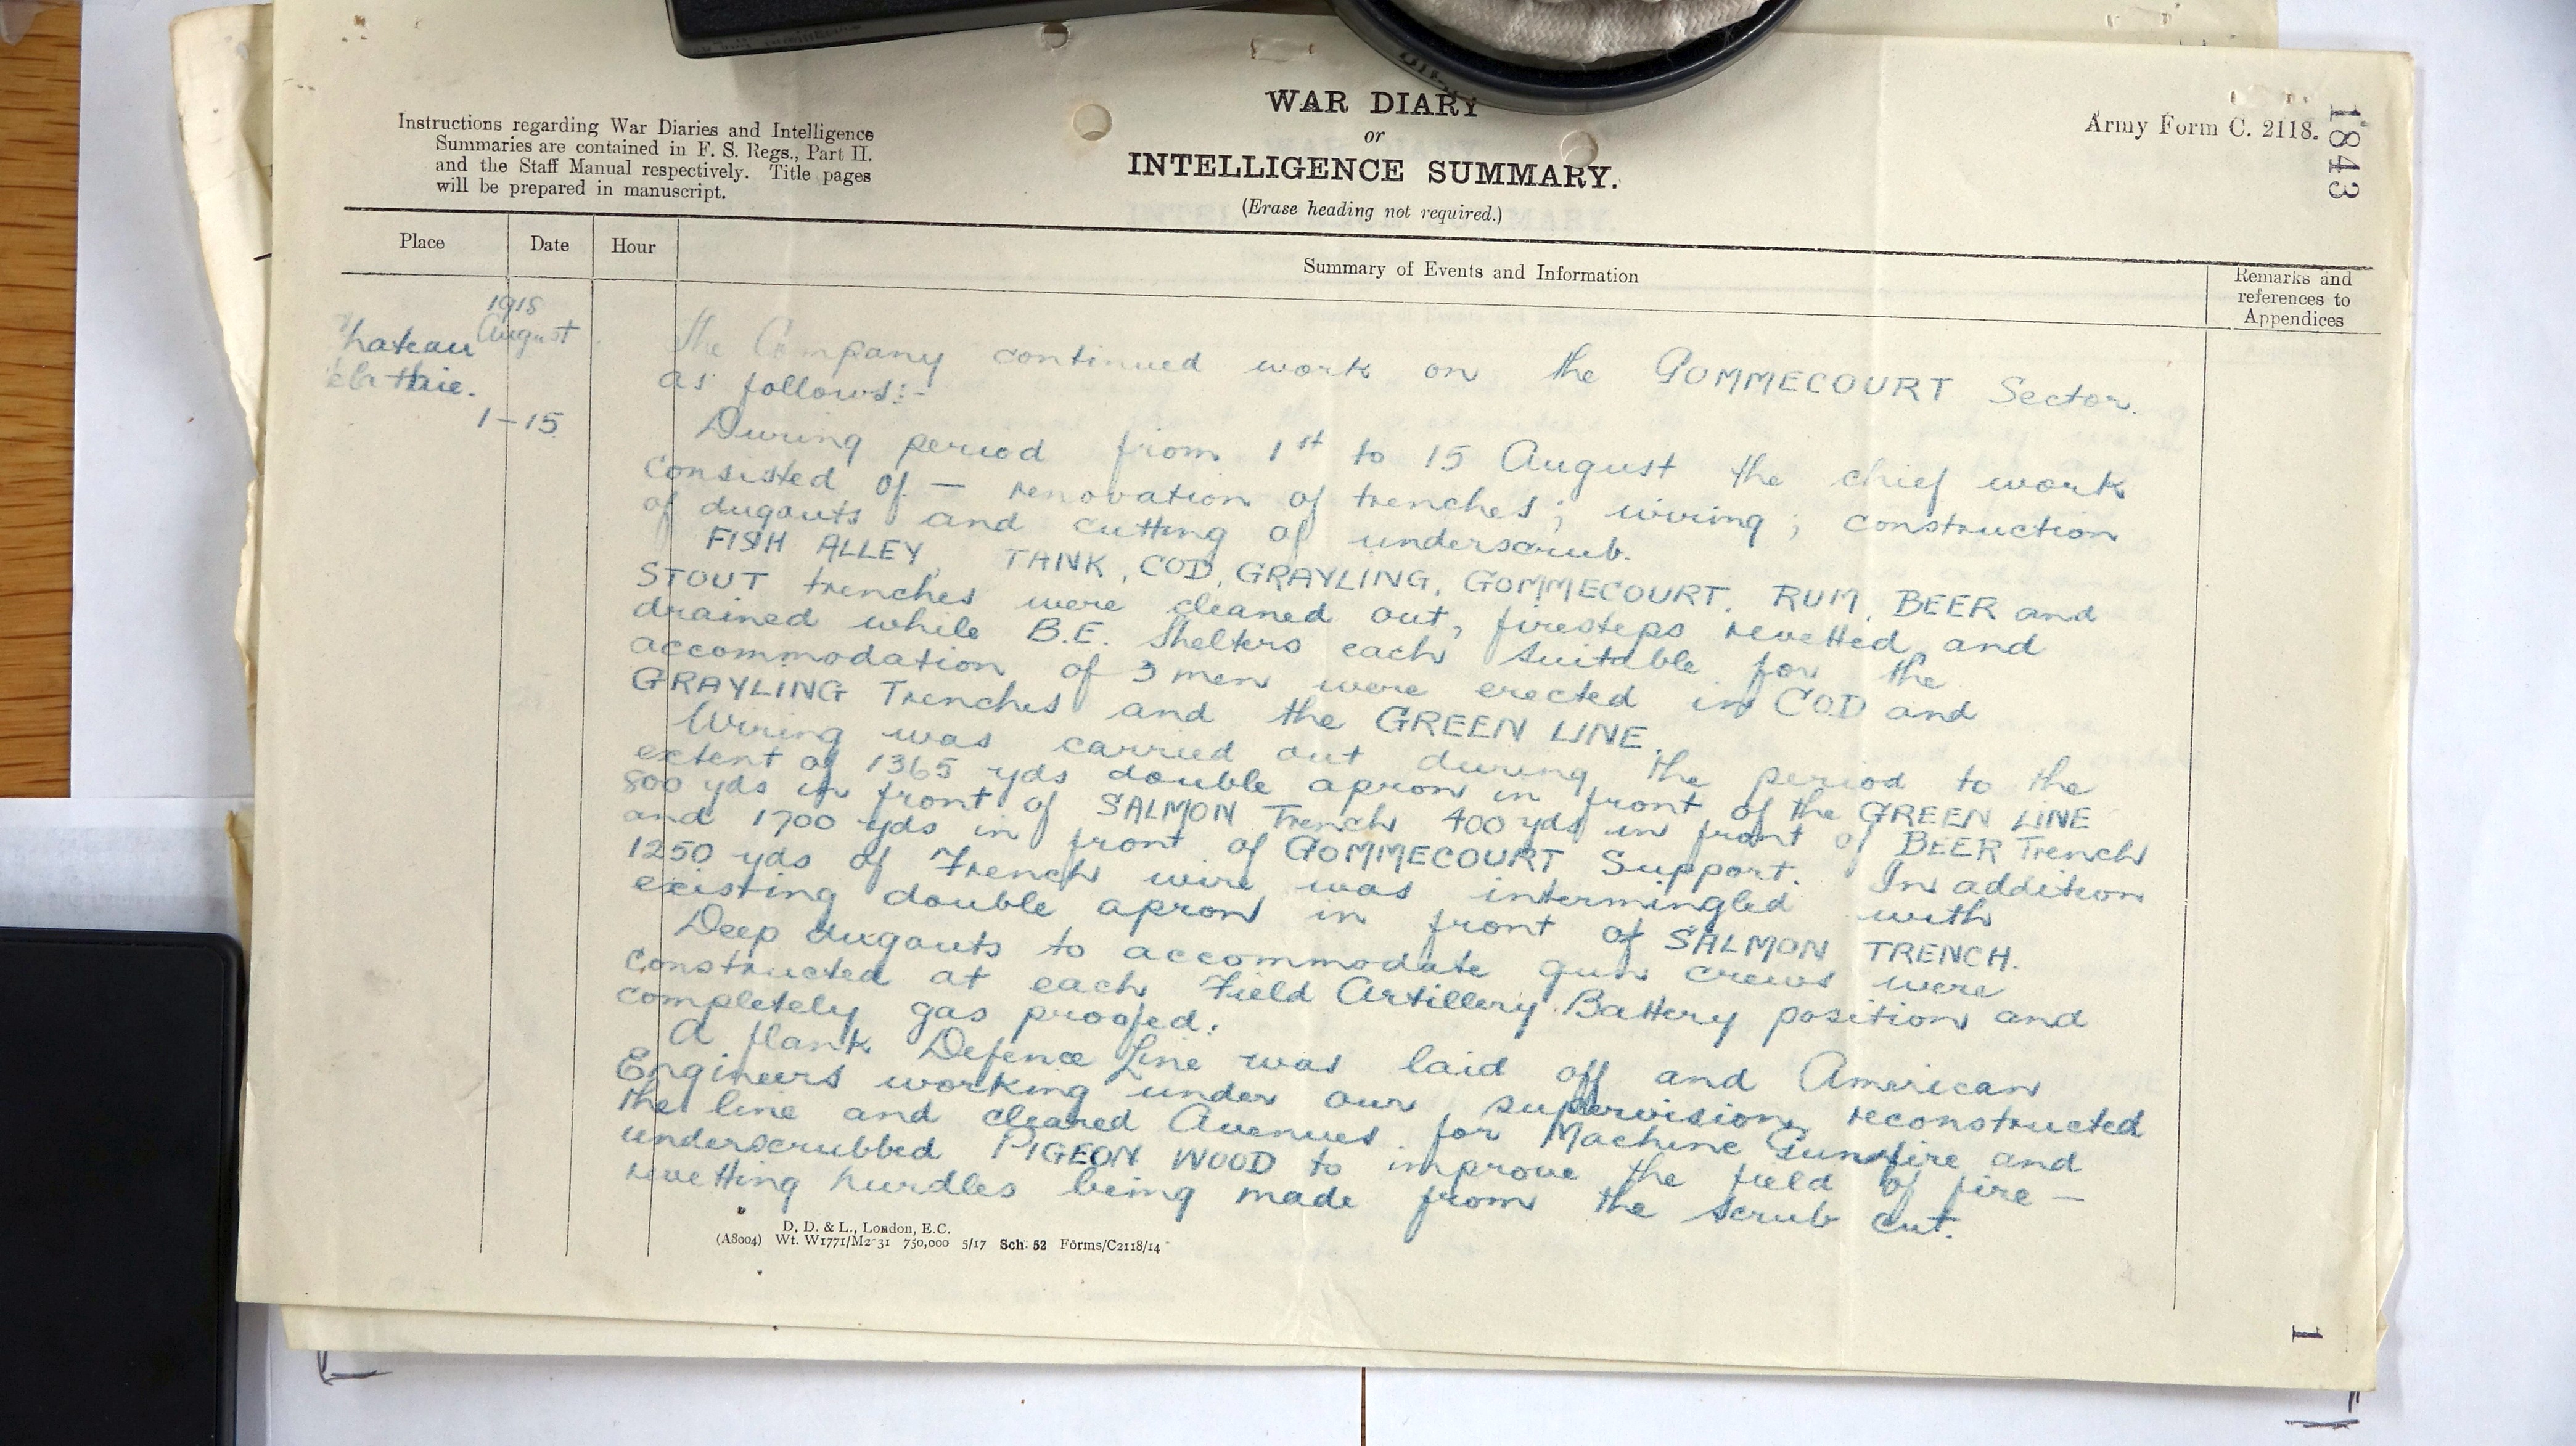 WAR DIARY
or
INTELLIGENCE SUMMARY.
(Erase heading not required.)
Instructions regarding War Diaries and Intelligence
Summaries are contained in F. S. Regs., Part II.
and the Staff Manual respectively. Title pages
will be prepared in manuscript.
Army Form C. 2118.
1843
Place
Date
Hour
Summary of Events and Information
Remarks and
references to
Appendices
1918
August
hateau
1-15
The Company continued work on the GOMMECOURT Sector.
as follows:-
During period from 1st to 15 August the chief work
consisted of — renovation of trenches; wiring; construction
of dugouts and cutting of underscrub.
FISH ALLEY, TANK, COD, GRAYLING, GOMMECOURT, RUM, BEER and
STOUT trenches were cleaned out, firesteps revetted and
drained while B.E. Shelters each suitable for the
accommodation of 3 men were erected in COD and
GRAYLING Trenches and the GREEN LINE.
Wiring was carried out during the period to the
extent of 1365 yds double apron in front of the GREEN LINE
800 yds in front of SALMON Trench 400 yds in front of BEER Trench
and 1700 yds in front of GOMMECOURT Support. In addition
1250 yds of French wire was intermingled with
existing double apron in front of SALMON TRENCH.
Deep dugouts to accommodate gun crews were
constructed at each Field Artillery Battery position and
completely gas proofed.
A flank Defence Line was laid off and American
Engineers working under our supervision, reconstructed
the line and cleared Avenues for Machine Gun fire and
underscrubbed PIGEON WOOD to improve the field of fire —
revetting hurdles being made from the scrub cut.
D. D. & L., London, E.C.
(A8004) Wt. W1771/M2-31 750,000 5/17 Sch. 52 Forms/C2118/14
1